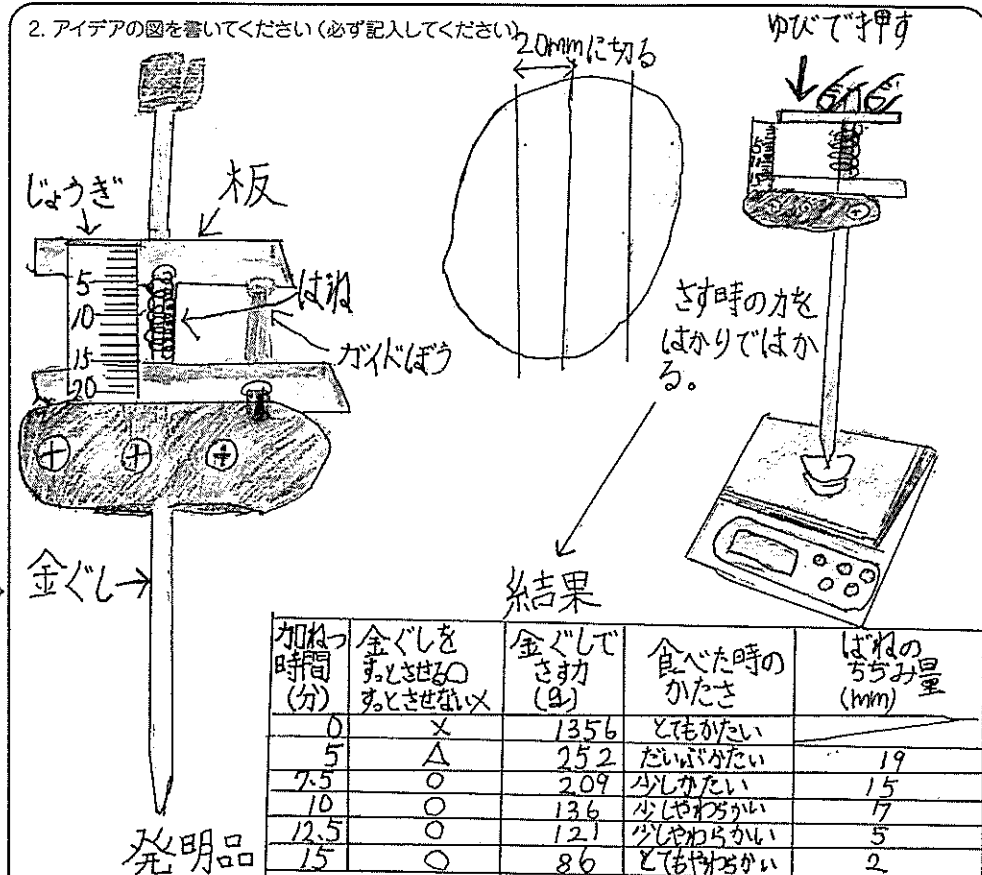 2. アイデアの図を書いてください(必ず記入してください)
20mmに切る
ゆびで押す
じょうぎ
板
5
10
15
20
ばね
ガイドぼう
さす時の力を
はかりではか
る。
金ぐし
発明品
結果
加ねつ時間(分) 金ぐしをすっとさせる○すっとさせない× 金ぐしでさす力(g) 食べた時のかたさ ばねのちぢみ量(mm)
0 × 1356 とてもかたい
5 △ 252 だいぶかたい 19
7.5 ○ 209 少しかたい 15
10 ○ 136 少しやわらかい 7
12.5 ○ 121 少しやわらかい 5
15 ○ 86 とてもやわらかい 2